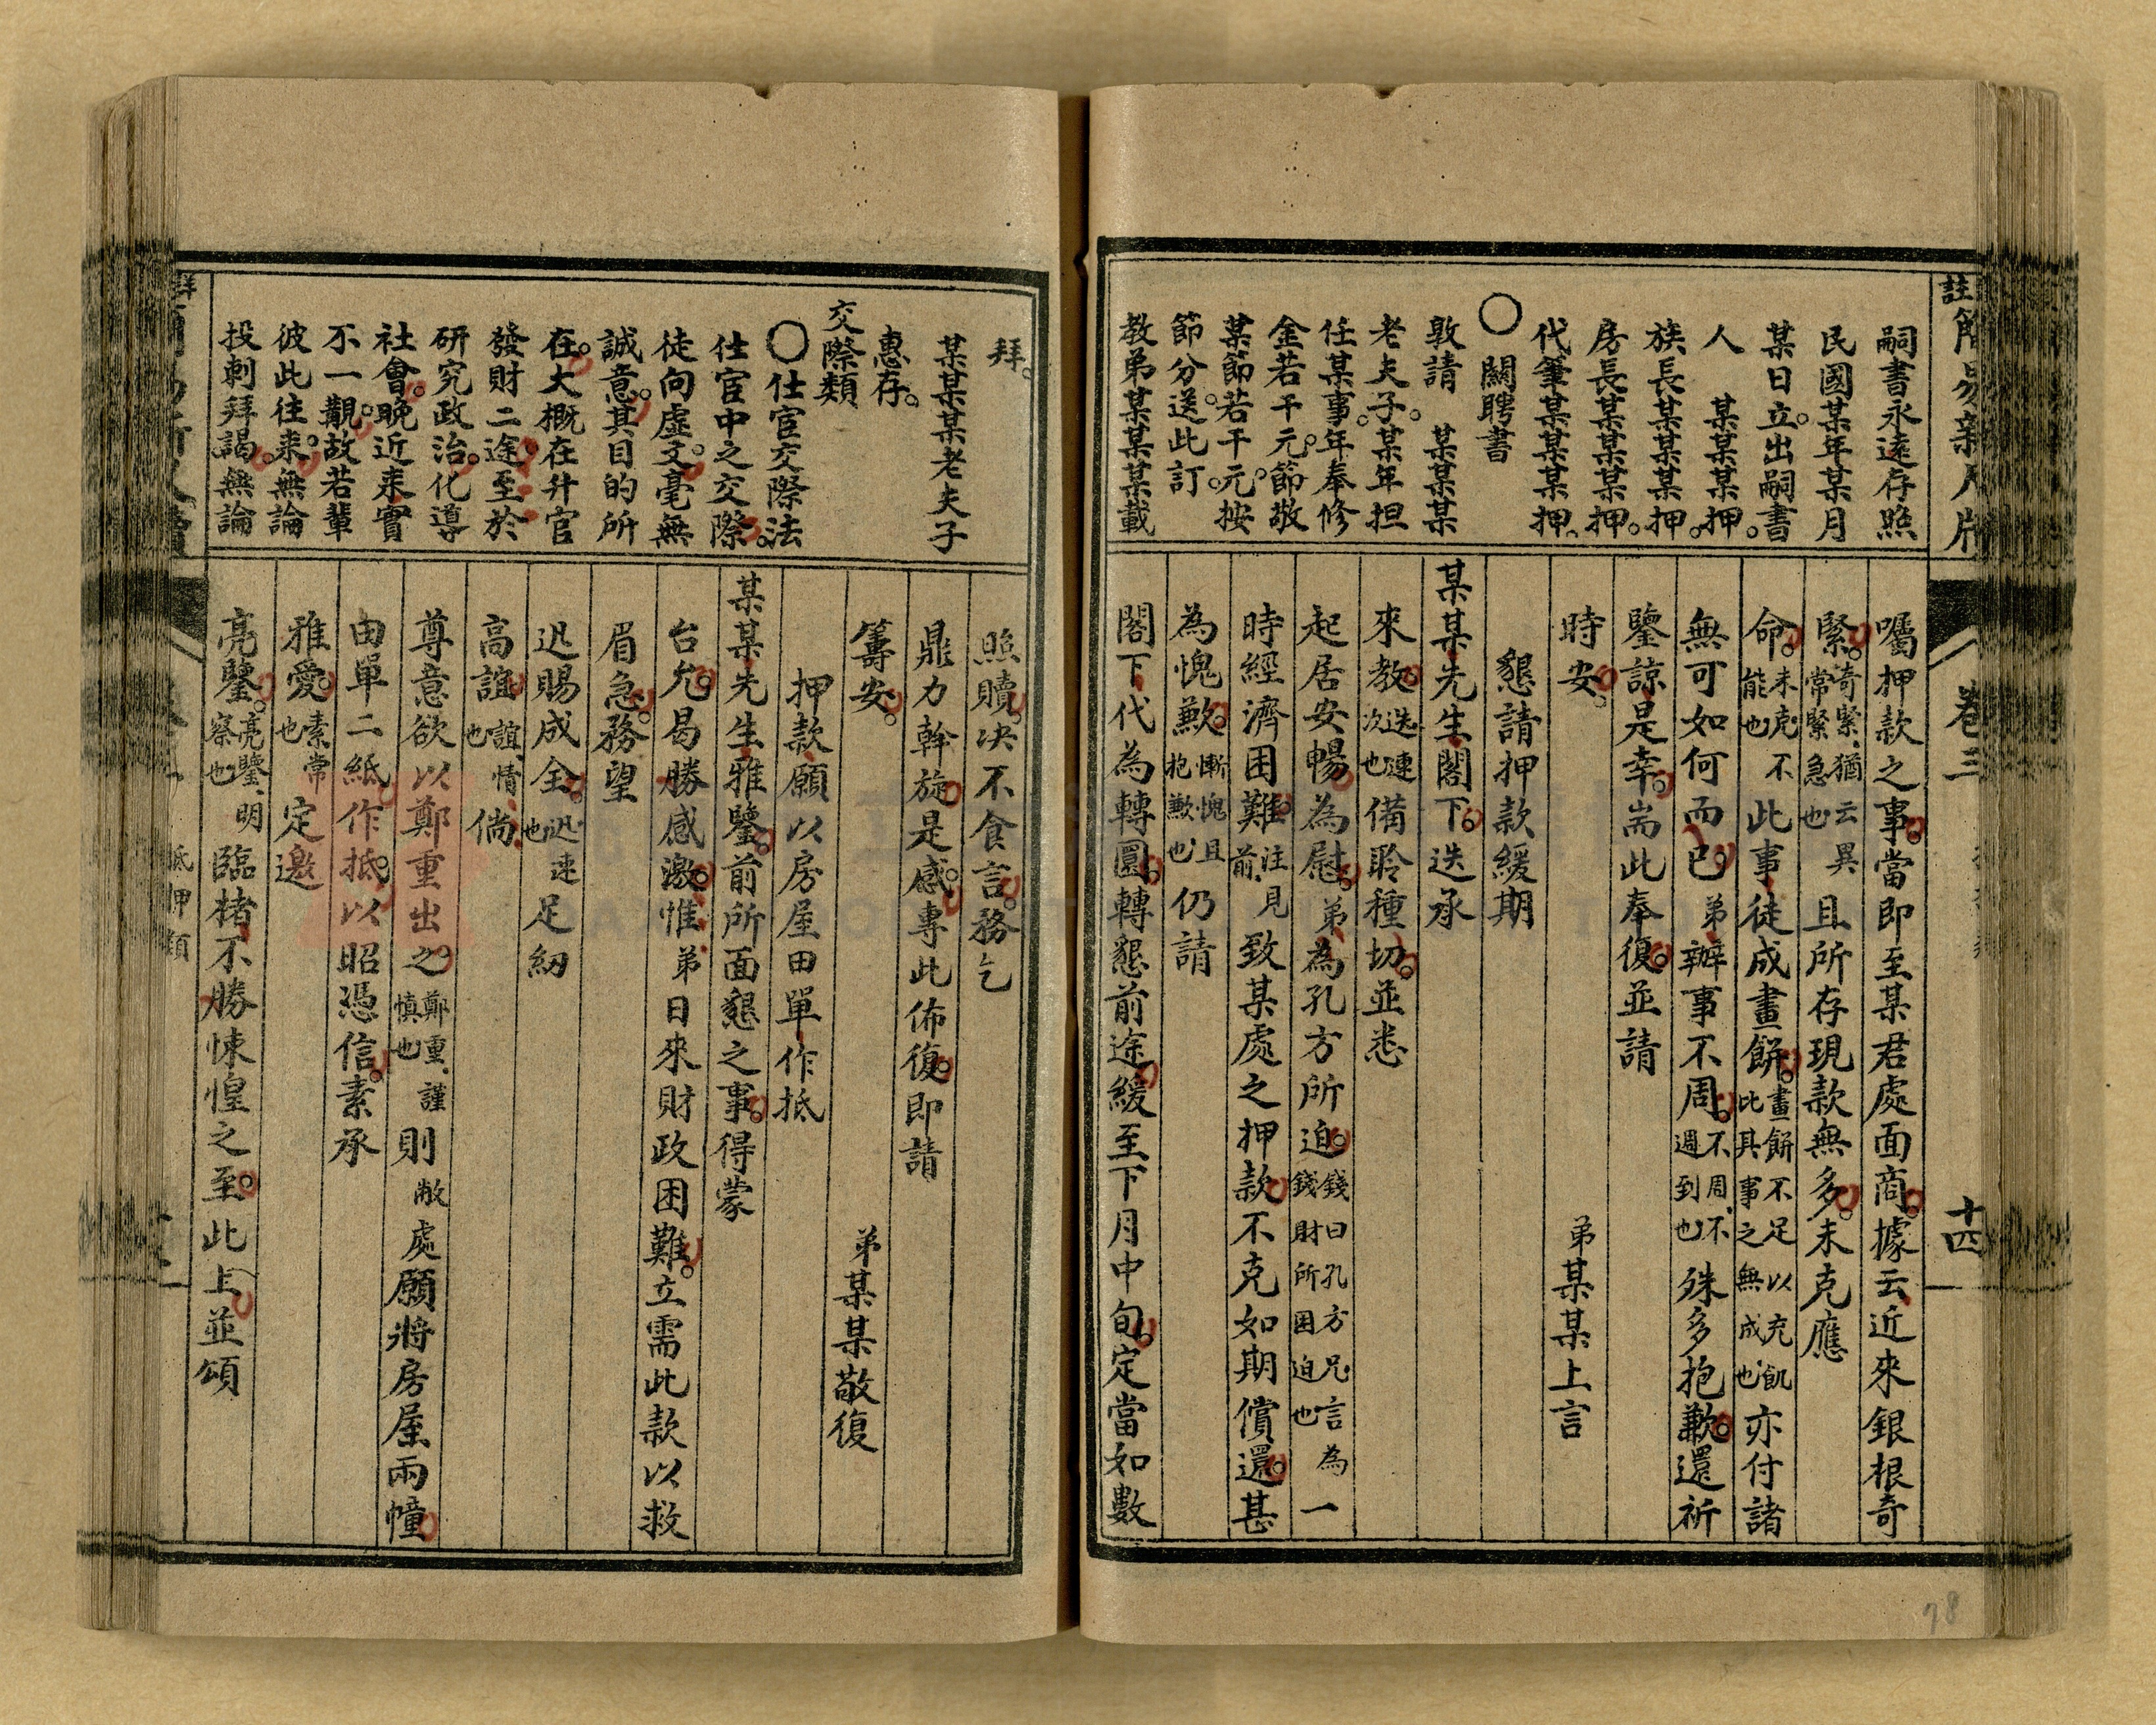 嗣書永遠存照
民國某年某月
某日立。出嗣書
人　某某某押。
族長某某某押。
房長某某某押。
代筆某某某押。
〇　關聘書
敦請　某某某
老夫子。某年担
任某事。年奉修
金若干元。節敬
某節若干元。按
節分送。此訂。
教弟某某某某載
囑押款之事。當即至某君處面商。據云近來銀根奇
緊。奇緊、猶云異常緊急也 且所存現款無多。未克應
命。未克、不能也 此事徒成畫餅。畫餅不足以充飢此其事之無成也 亦付諸
無可如何而已。弟辦事不周。不周、不週到也 殊多抱歉。還祈
鑒諒是幸。耑此奉復。並請
時安。　弟某某上言
懇請押款緩期
某某先生閣下。迭承
來教。迭連次也 備聆種切。並悉
起居安暢為慰。弟為孔方所迫。錢曰孔方兄言為錢財所困迫也 一
時經濟困難。注見前、致某處之押款。不克如期償還。甚
為愧歉。慚愧且抱歉也 仍請
閣下代為轉圜。轉懇前途。緩至下月中旬。定當如數
卷三
十四
拜。
某某某老夫子
惠存。
交際類
〇仕官交際法
仕宦中之交際。
徒向虛文。毫無
誠意。其目的所
在。大概在升官
發財二途。至於
研究政治。化導
社會。晚近來實
不一覯。故若輩
彼此往來。無論
投刺拜謁。無論
照贖。决不食言。務乞
鼎力幹旋。是感。專此佈復。即請
籌安。　弟某某敬復
押款願以房屋田單作抵
某某先生雅鑒。前所面懇之事。得蒙
台允。曷勝感激。惟弟日來財政困難。立需此款以救
眉急。務望
迅賜成全。迅速也 足紉
高誼。誼、情也 倘
尊意欲以鄭重出之。鄭重、謹慎也 則敝處願將房屋兩幢。
由單二紙。作抵。以昭憑信。素承
雅愛。素常也 定邀
亮鑒。亮鑒、明察也 臨楮不勝悚惶之至。此上。並頌
抵押類
78